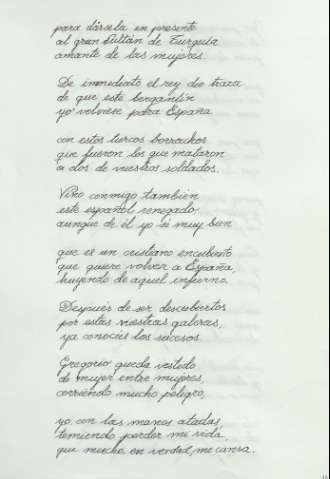 para dársela en presente
al gran Sultán de Turquía
amante de las mujeres.
De inmediato el rey dio traza
de que este bergantín
yo volviese para España
con estos turcos borrachos
que fueron los que mataron
a dos de vuestros soldados.
Vino conmigo también
este español renegado,
aunque de él yo sé muy bien
que es un cristiano encubierto
que quiere volver a España,
huyendo de aquel infierno.
Después de ser descubiertos
por estas vuestras galeras,
ya conocéis los sucesos.
Gregorio queda vestido
de mujer entre mujeres,
corriendo mucho peligro,
yo, con las manos atadas,
temiendo perder mi vida,
que mucho, en verdad, me cansa.